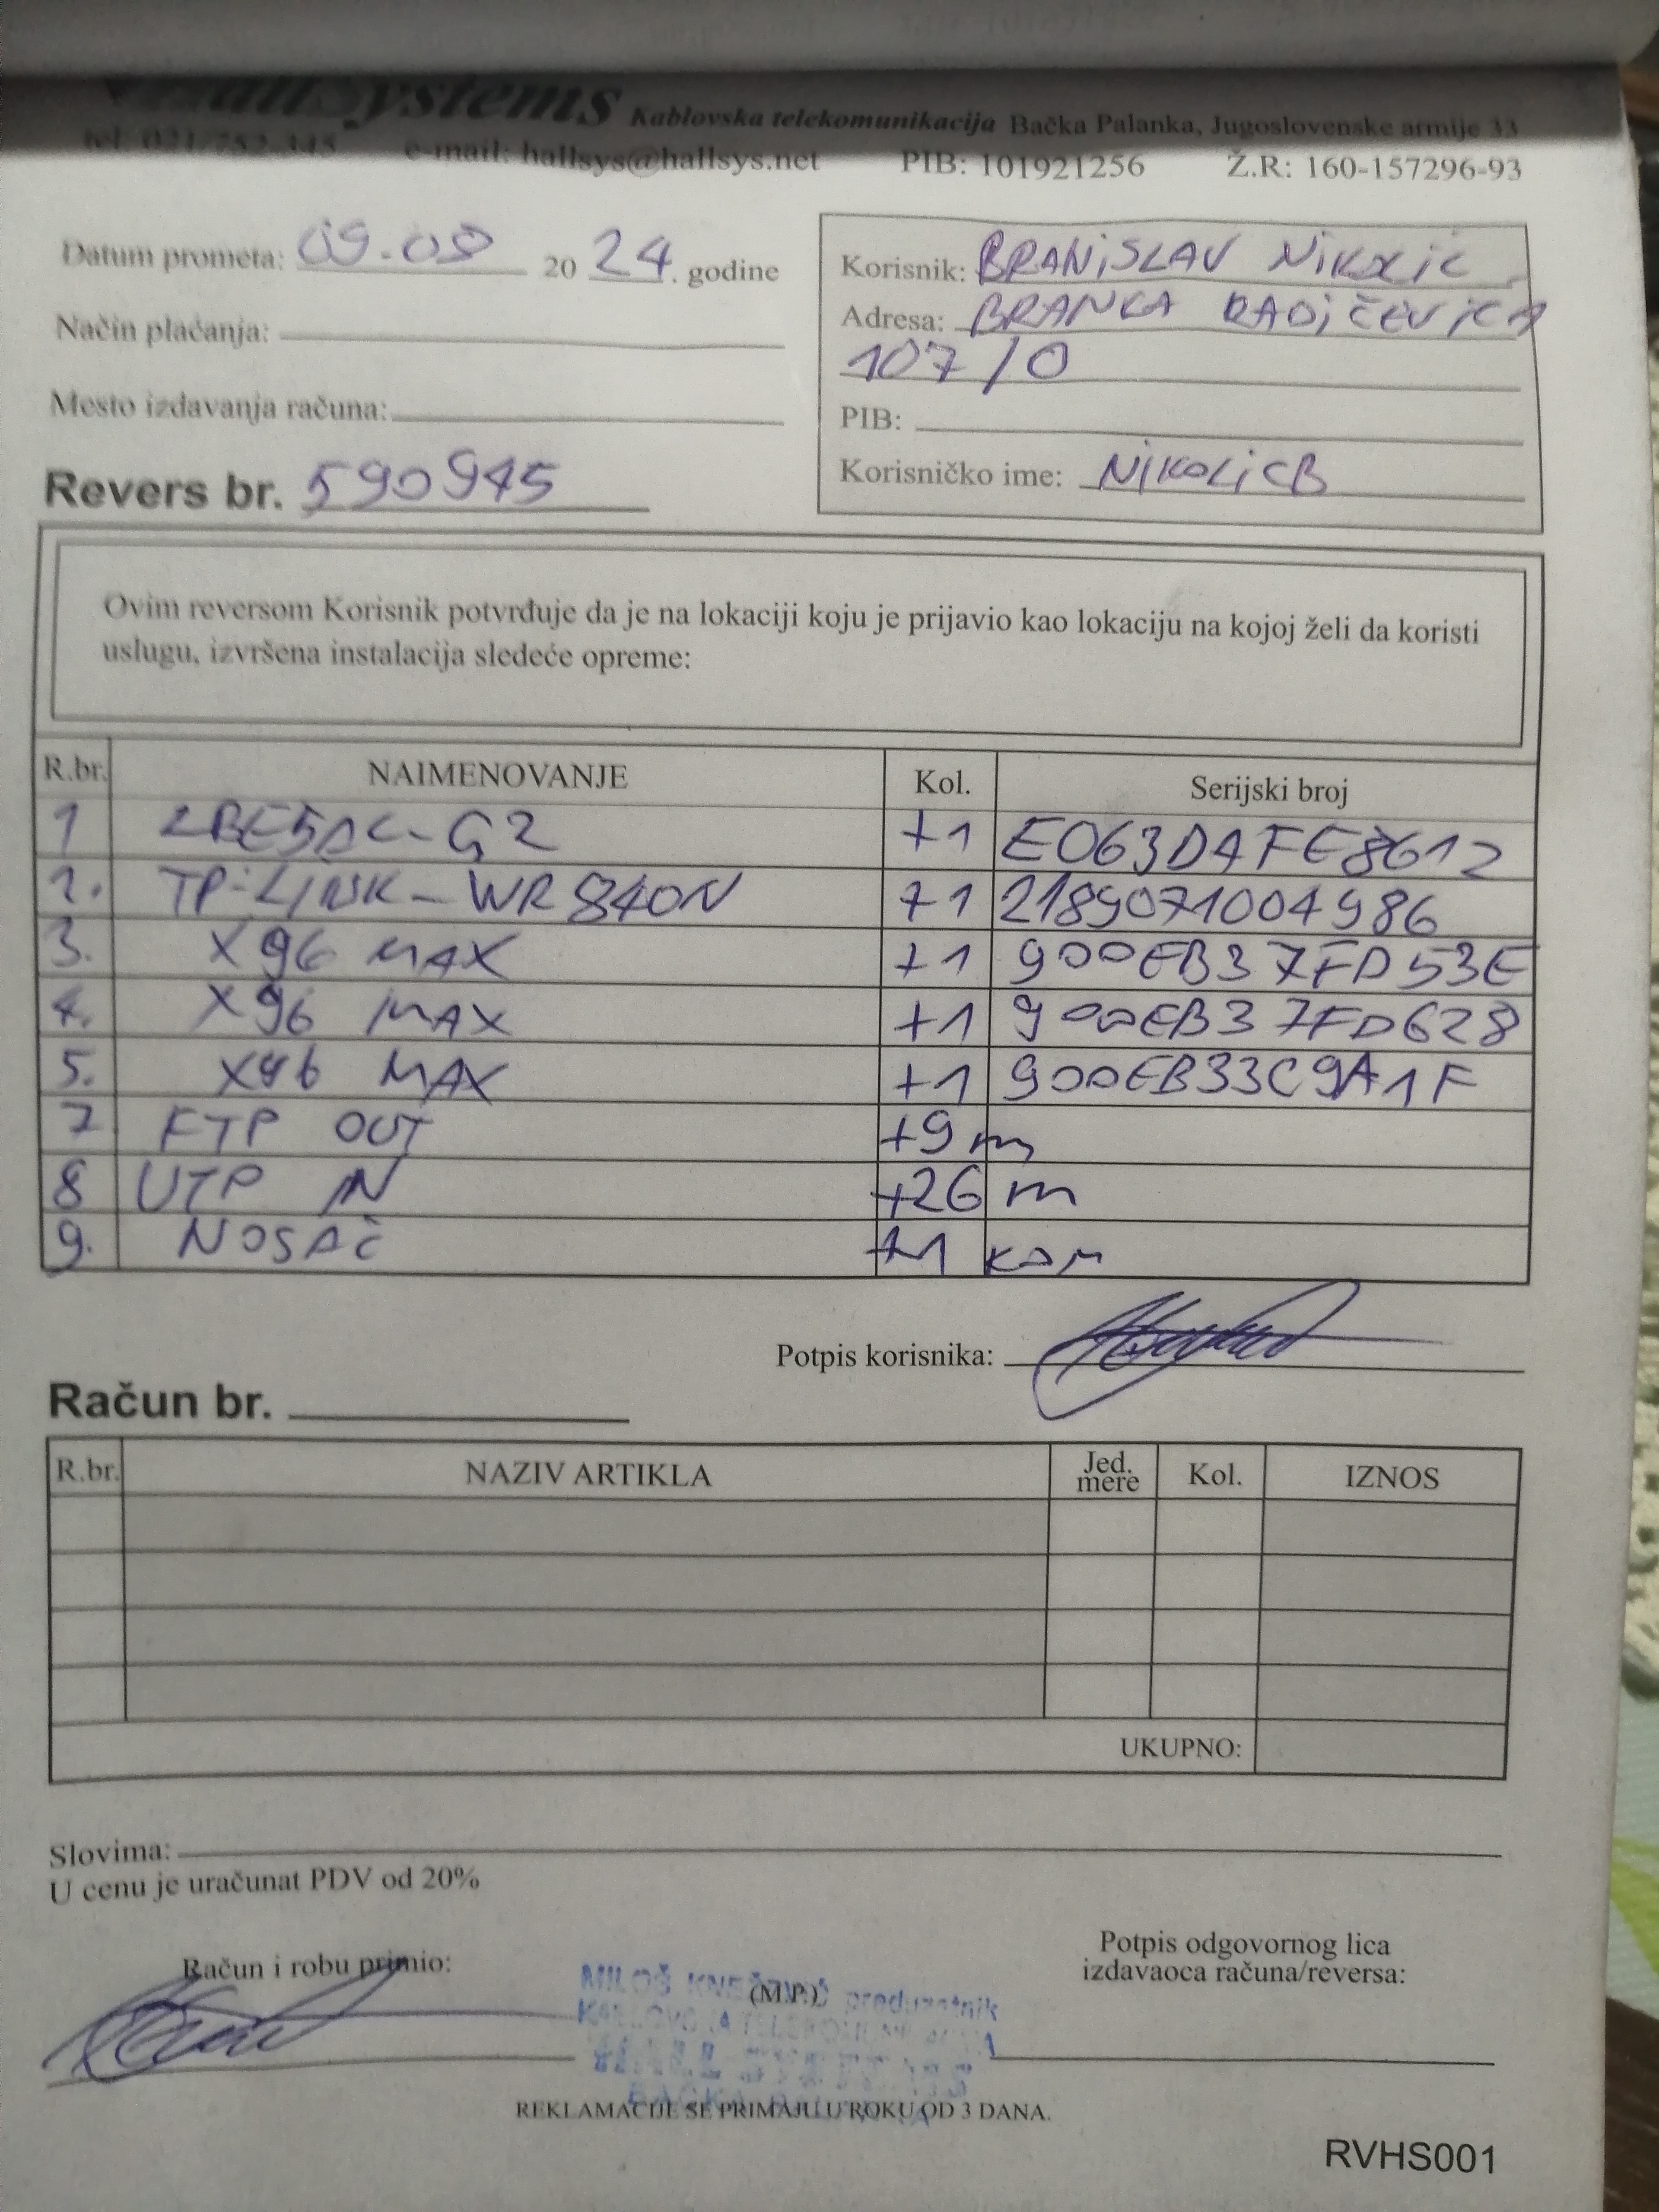 HallSystems Kablovska telekomunikacija Bačka Palanka, Jugoslovenske armije 33
tel: 021/752-345 e-mail: hallsys@hallsys.net PIB: 101921256 Ž.R: 160-157296-93
Datum prometa: 09.08 2024. godine
Način plaćanja:
Mesto izdavanja računa:
Revers br. 590945
Korisnik: BRANiSLAV NiKOLiĆ
Adresa: BRANKA RADiČEViĆA
107/0
PIB:
Korisničko ime: NIKOLiCB
Ovim reversom Korisnik potvrđuje da je na lokaciji koju je prijavio kao lokaciju na kojoj želi da koristi
uslugu, izvršena instalacija sledeće opreme:
R.br. NAIMENOVANJE Kol. Serijski broj
1 LBE5AC-G2 +1 E063DAFE8612
2. TP-LINK-WR840N +1 2189071004986
3. X96 MAX +1 900EB37FD53E
4. X96 MAX +1 900EB37FD628
5. X96 MAX +1 900EB33C9A1F
7 FTP OUT +9 m
8 UTP IN +26 m
9. NOSAČ +1 KOM
Potpis korisnika:
Račun br.
R.br. NAZIV ARTIKLA Jed. mere Kol. IZNOS
UKUPNO:
Slovima:
U cenu je uračunat PDV od 20%
Račun i robu primio:
(M.P.)
MILOŠ KNEŽEVIĆ preduzetnik
Potpis odgovornog lica
izdavaoca računa/reversa:
REKLAMACIJE SE PRIMAJU U ROKU OD 3 DANA.
RVHS001